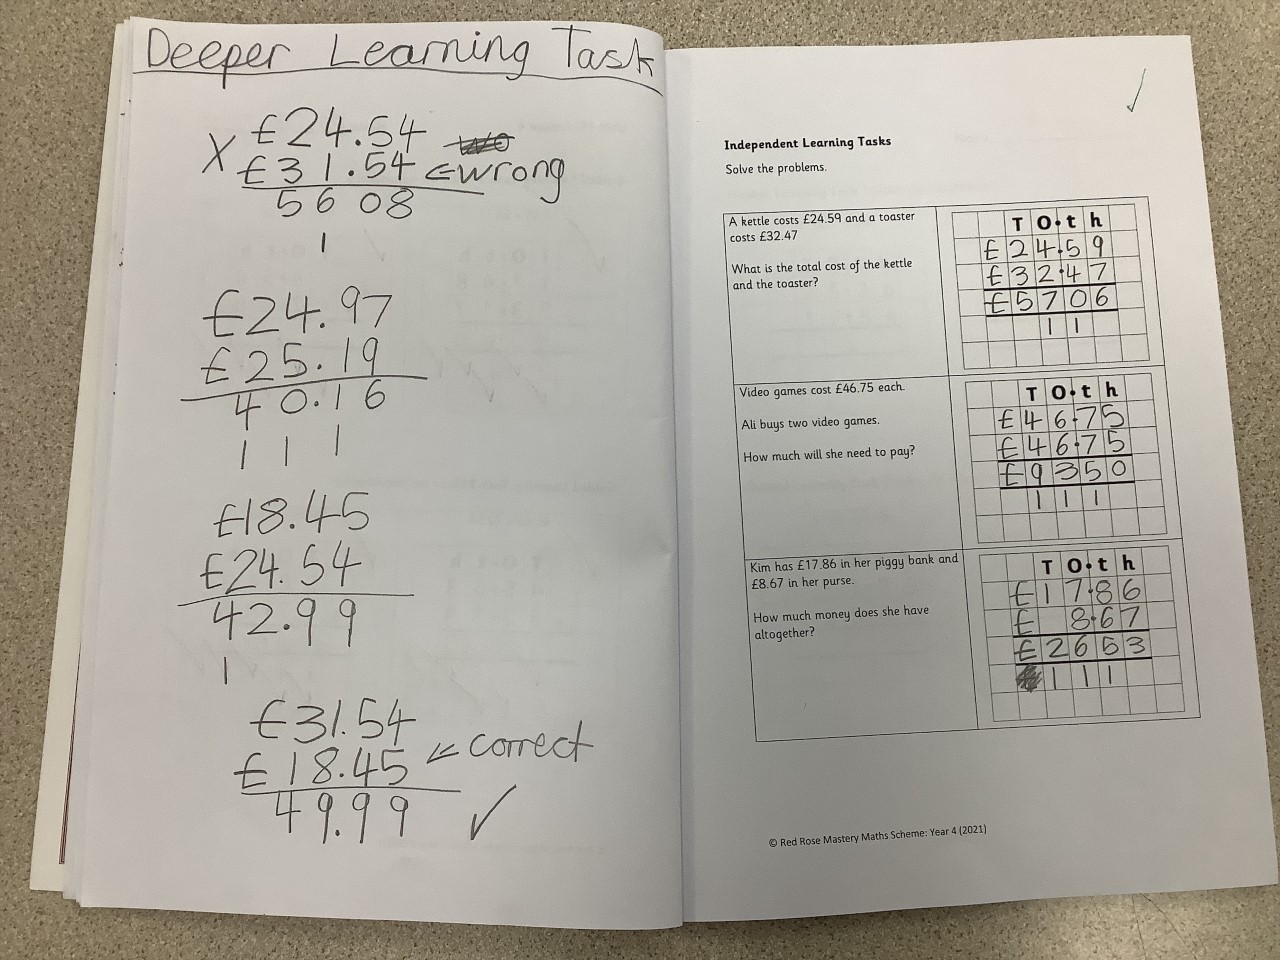 Deeper Learning Task
X £24.54
£31.54 ⇐wrong
56 08
1
£24.97
£25.19
40.16
1 1 1
£18.45
£24.54
42.99
1
£31.54
£18.45 ⇐ correct
49.99 ✓
✓
Independent Learning Tasks
Solve the problems.
A kettle costs £24.59 and a toaster
costs £32.47
What is the total cost of the kettle
and the toaster?
T O . t h
£24.59
£32.47
£5706
1 1
Video games cost £46.75 each.
Ali buys two video games.
How much will she need to pay?
T O . t h
£46.75
£46.75
£9350
1 1 1
Kim has £17.86 in her piggy bank and
£8.67 in her purse.
How much money does she have
altogether?
T O . t h
£17.86
£ 8.67
£2653
1 1 1
© Red Rose Mastery Maths Scheme: Year 4 (2021)